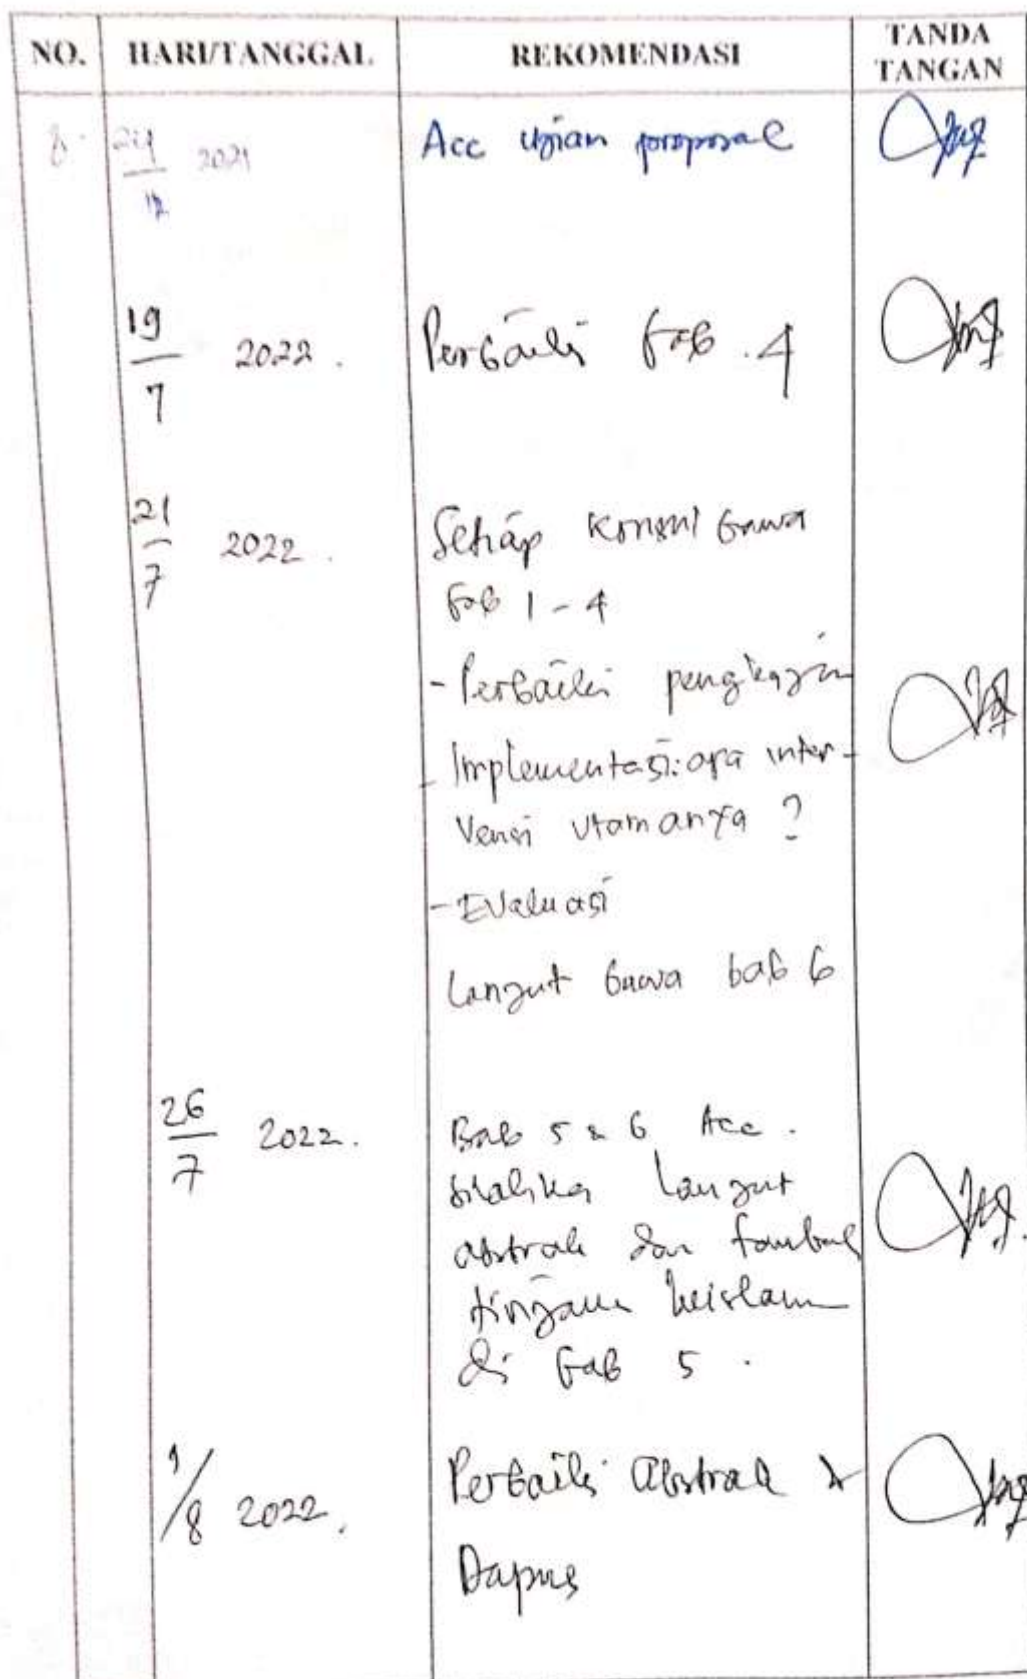 NO. HARI/TANGGAL REKOMENDASI TANDA TANGAN
8. 24/12 2021 Acc Ujian proposal
19/7 2022. Perbaiki bab. 4
21/7 2022. Setiap Konsul bawa
bab 1-4
- Perbaiki pengkajian
- Implementasi: apa inter-
vensi utamanya ?
- Evaluasi
Lanjut bawa bab 6
26/7 2022. Bab 5 & 6 Acc.
silahkan Lanjut
abstrak dan tambah
tinjauan keislaman
di bab 5.
1/8 2022. Perbaiki Abstrak &
Dapus